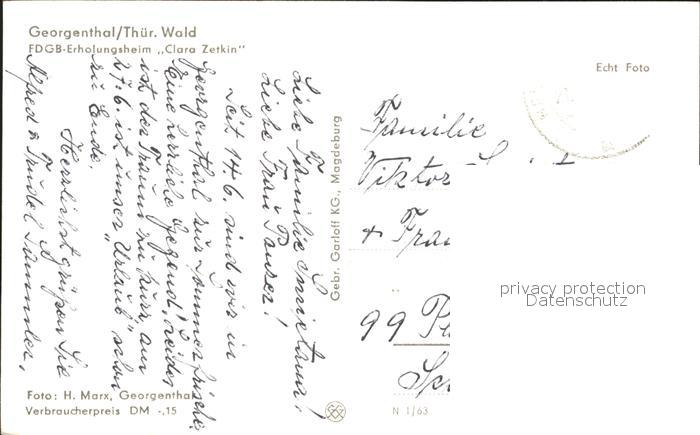 Georgenthal/Thür. Wald
FDGB-Erholungsheim „Clara Zetkin"
Echt Foto
Liebe Familie
liebe Frau Panser!
Seit 14.6. sind wir in
Georgenthal zur Sommerfrische.
Eine herrliche Gegend! Leider
ist der Traum zu kurz, am
27.6. ist unser „Urlaub" schon
zu Ende.
Herzlichst grüßen Sie
Alfred & Trudel
Gebr. Garloff KG., Magdeburg
Familie
Viktor
+ Frau
99
privacy protection
Datenschutz
Foto: H. Marx, Georgenthal
Verbraucherpreis DM -,15
N 1/63